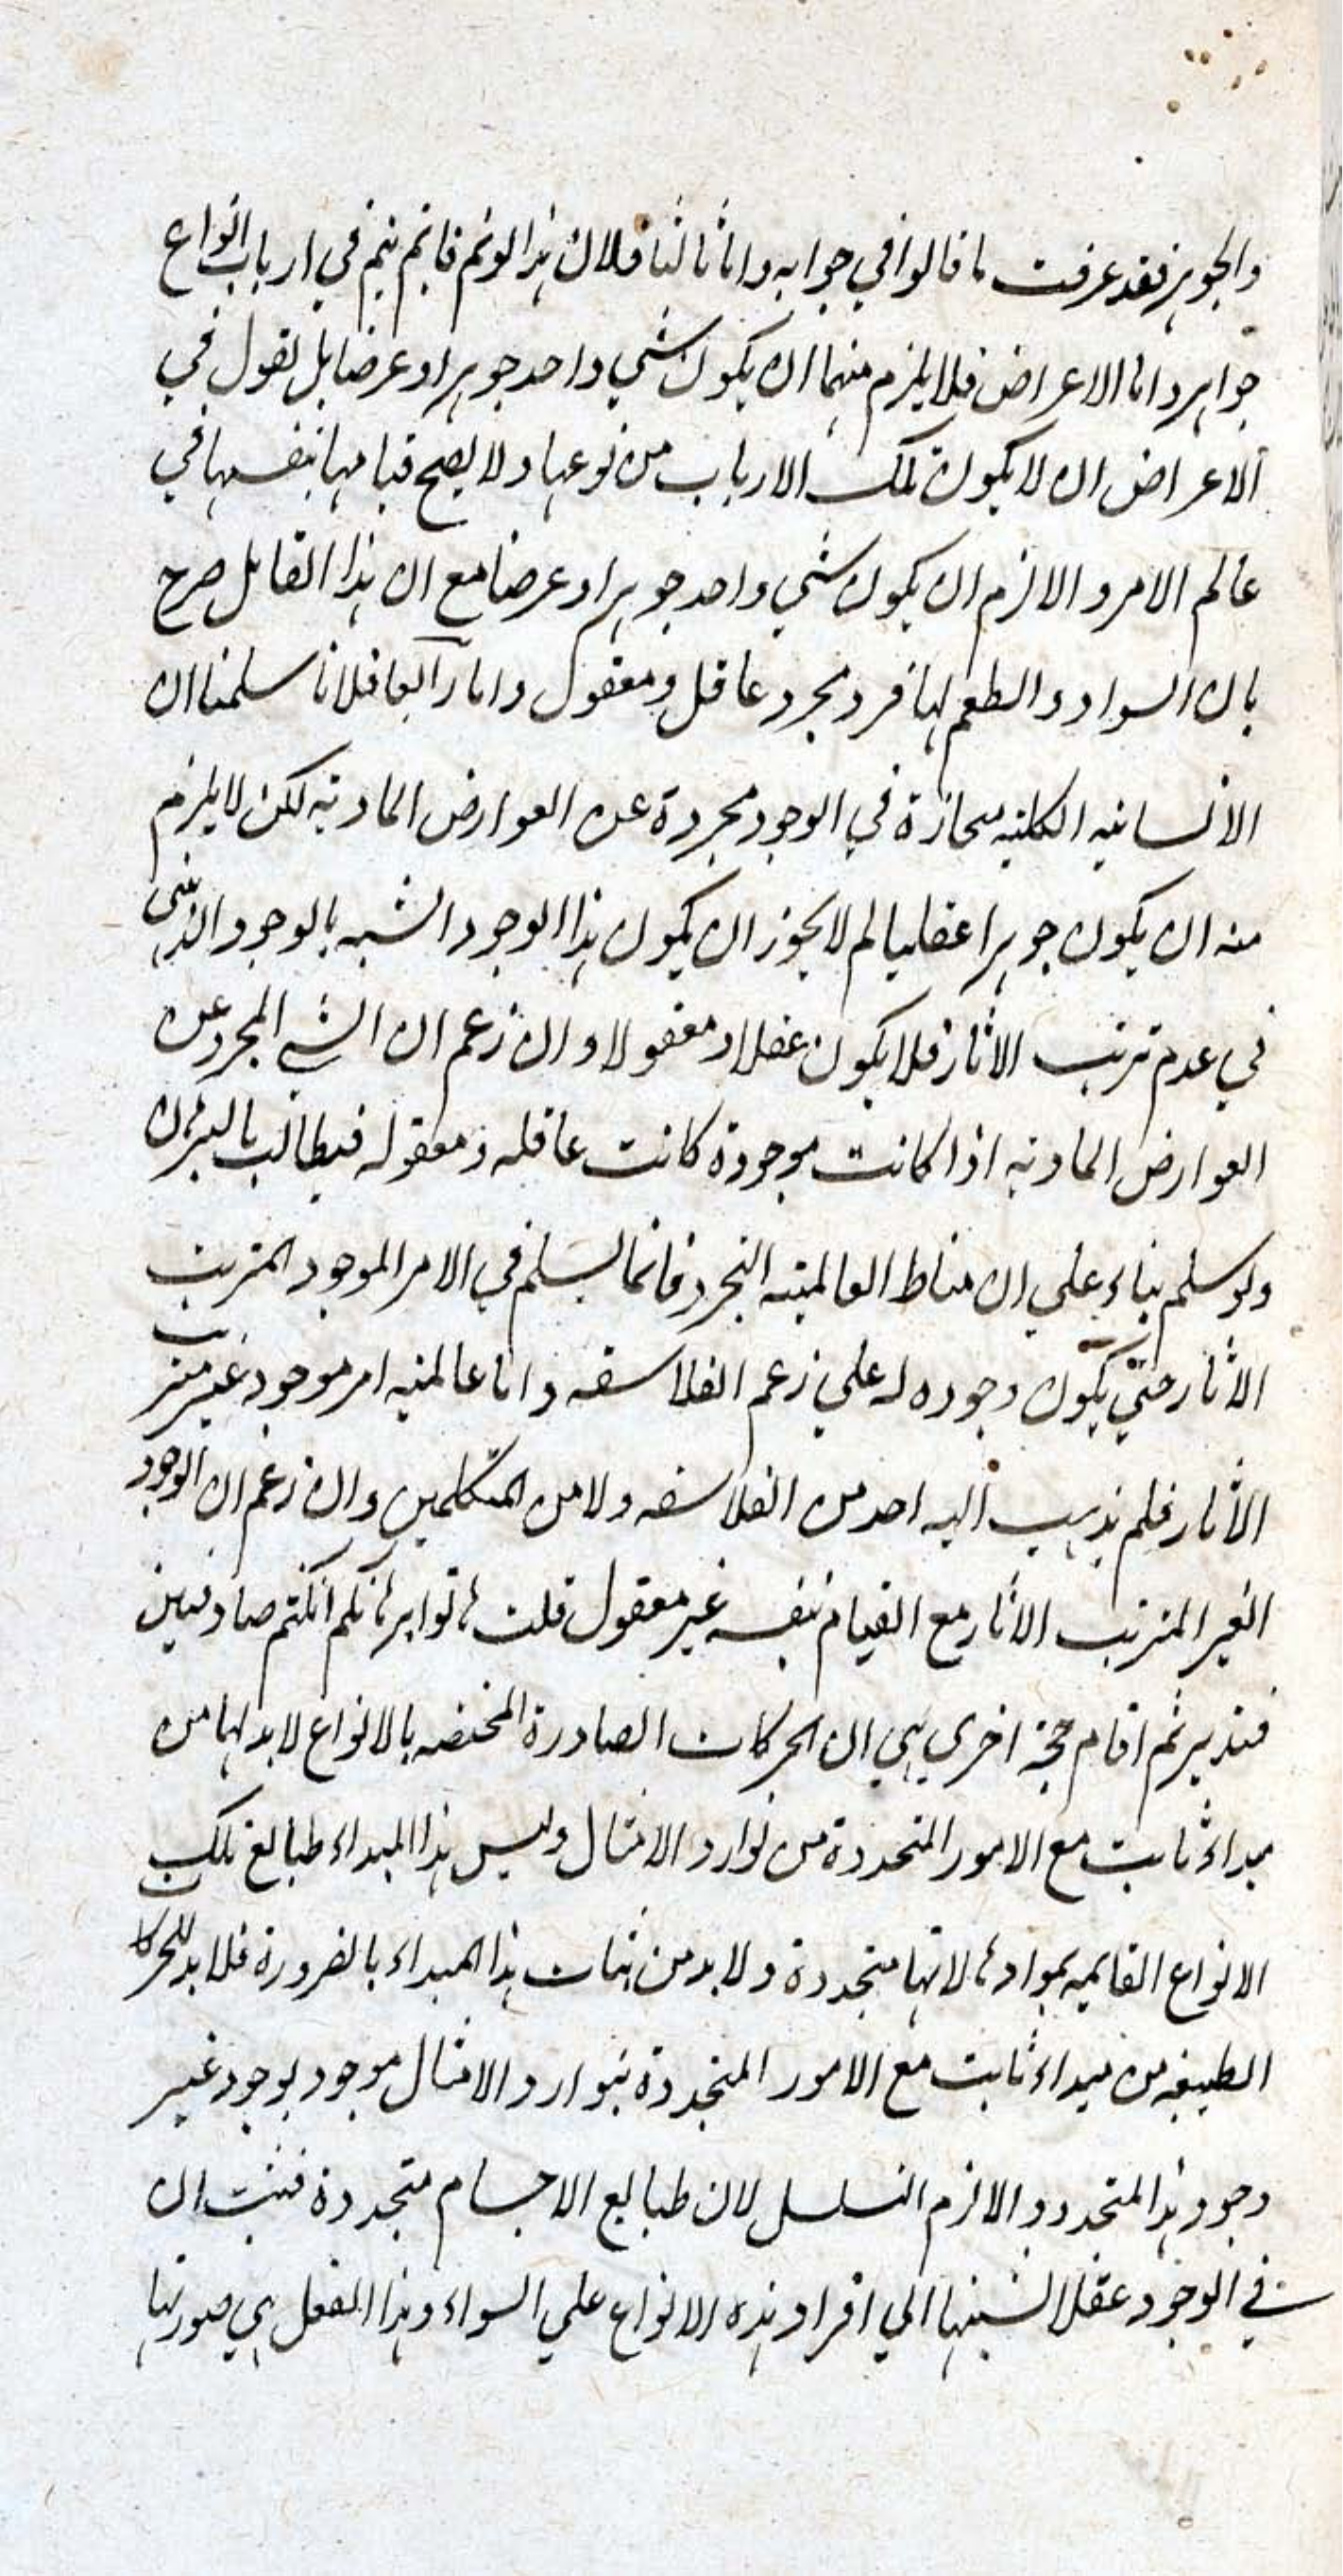 والجوهر فقد عرفت ما قالوا في جوابه واما ثالثا فلان هذا لو تم فانما يتم في ارباب انواع
جواهر واما الاعراض فلا يلزم منهما ان يكون شي واحد جوهرا وعرضا بل نقول في
الاعراض ان لا يكون تلك الارباب من نوعها ولا يصح قيامها بنفسها في
عالم الامر والا لزم ان يكون شي واحد جوهرا وعرضا مع ان هذا القايل صرح
بان السواد والطعم لها فرد مجرد عاقل ومعقول واما رابعا فلانا سلمنا ان
الانسانيه الكليه منحازة في الوجود مجردة عن العوارض الماديه لكن لا يلزم
منه ان يكون جوهرا عقليا لم لا يجوز ان يكون هذا الوجود اشبه بالوجود الذهني
في عدم ترتب الاثار فلا يكون عقلا ومعقولا وان زعم ان الشي المجرد عن
العوارض الماديه اذا كانت موجودة كانت عاقله ومعقوله فيطالب بالبرهان
ولو سلم بناء علي ان مناط العالميه التجرد فانما يسلم في الامر الموجود المترتب
الاثار حتي يكون وجوده له علي زعم الفلاسفه واما عالميه امر موجود غير مترتب
الاثار فلم يذهب اليه احد من الفلاسفه ولا من المتكلمين وان زعم ان الوجود
الغير المترتب الاثار مع القيام بنفسه غير معقول قلت هاتوا برهانكم ان كنتم صادقين
فتدبر ثم اقام حجة اخري هي ان الحركات الصادرة المختصه بالانواع لا بد لها من
مبداء ثابت مع الامور المتجددة من توارد الامثال وليس هذا المبداء طبايع تلك
الانواع القايمه بموادها لانها متجددة ولا بد من ثبات هذا المبداء بالضرورة فلا بد للحركات
الطبيعيه من مبداء ثابت مع الامور المتجددة بتوارد الامثال موجود بوجود غير
وجود هذا المتجدد والا لزم التسلسل لان طبايع الاجسام متجددة فثبت ان
في الوجود عقلا نسبتها الي افراد هذه الانواع علي السواء وهذا العقل هي صورتها